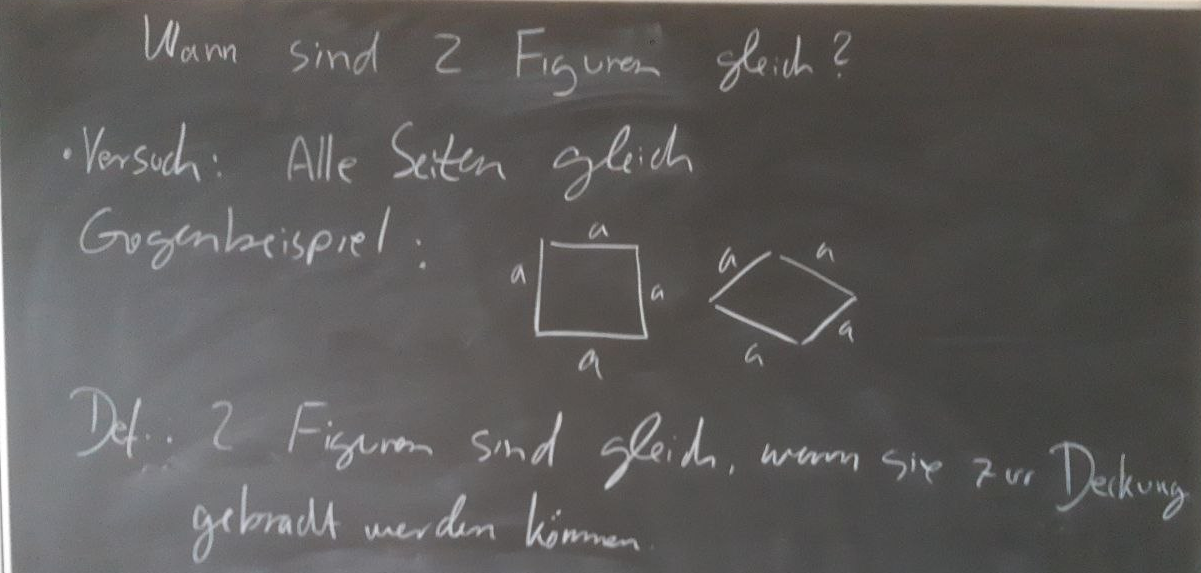 Wann sind 2 Figuren gleich?
• Versuch: Alle Seiten gleich
Gegenbeispiel:
a a a a
a a a a
Def.: 2 Figuren sind gleich, wenn sie zur Deckung
gebracht werden können.